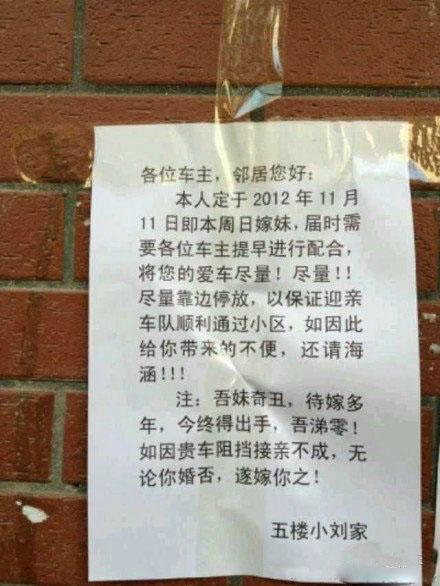 各位车主，邻居您好：
本人定于2012年11月
11日即本周日嫁妹，届时需
要各位车主提早进行配合，
将您的爱车尽量！尽量！！
尽量靠边停放，以保证迎亲
车队顺利通过小区，如因此
给你带来的不便，还请海
涵！！！
注：吾妹奇丑，待嫁多
年，今终得出手，吾涕零！
如因贵车阻挡接亲不成，无
论你婚否，遂嫁你之！
五楼小刘家